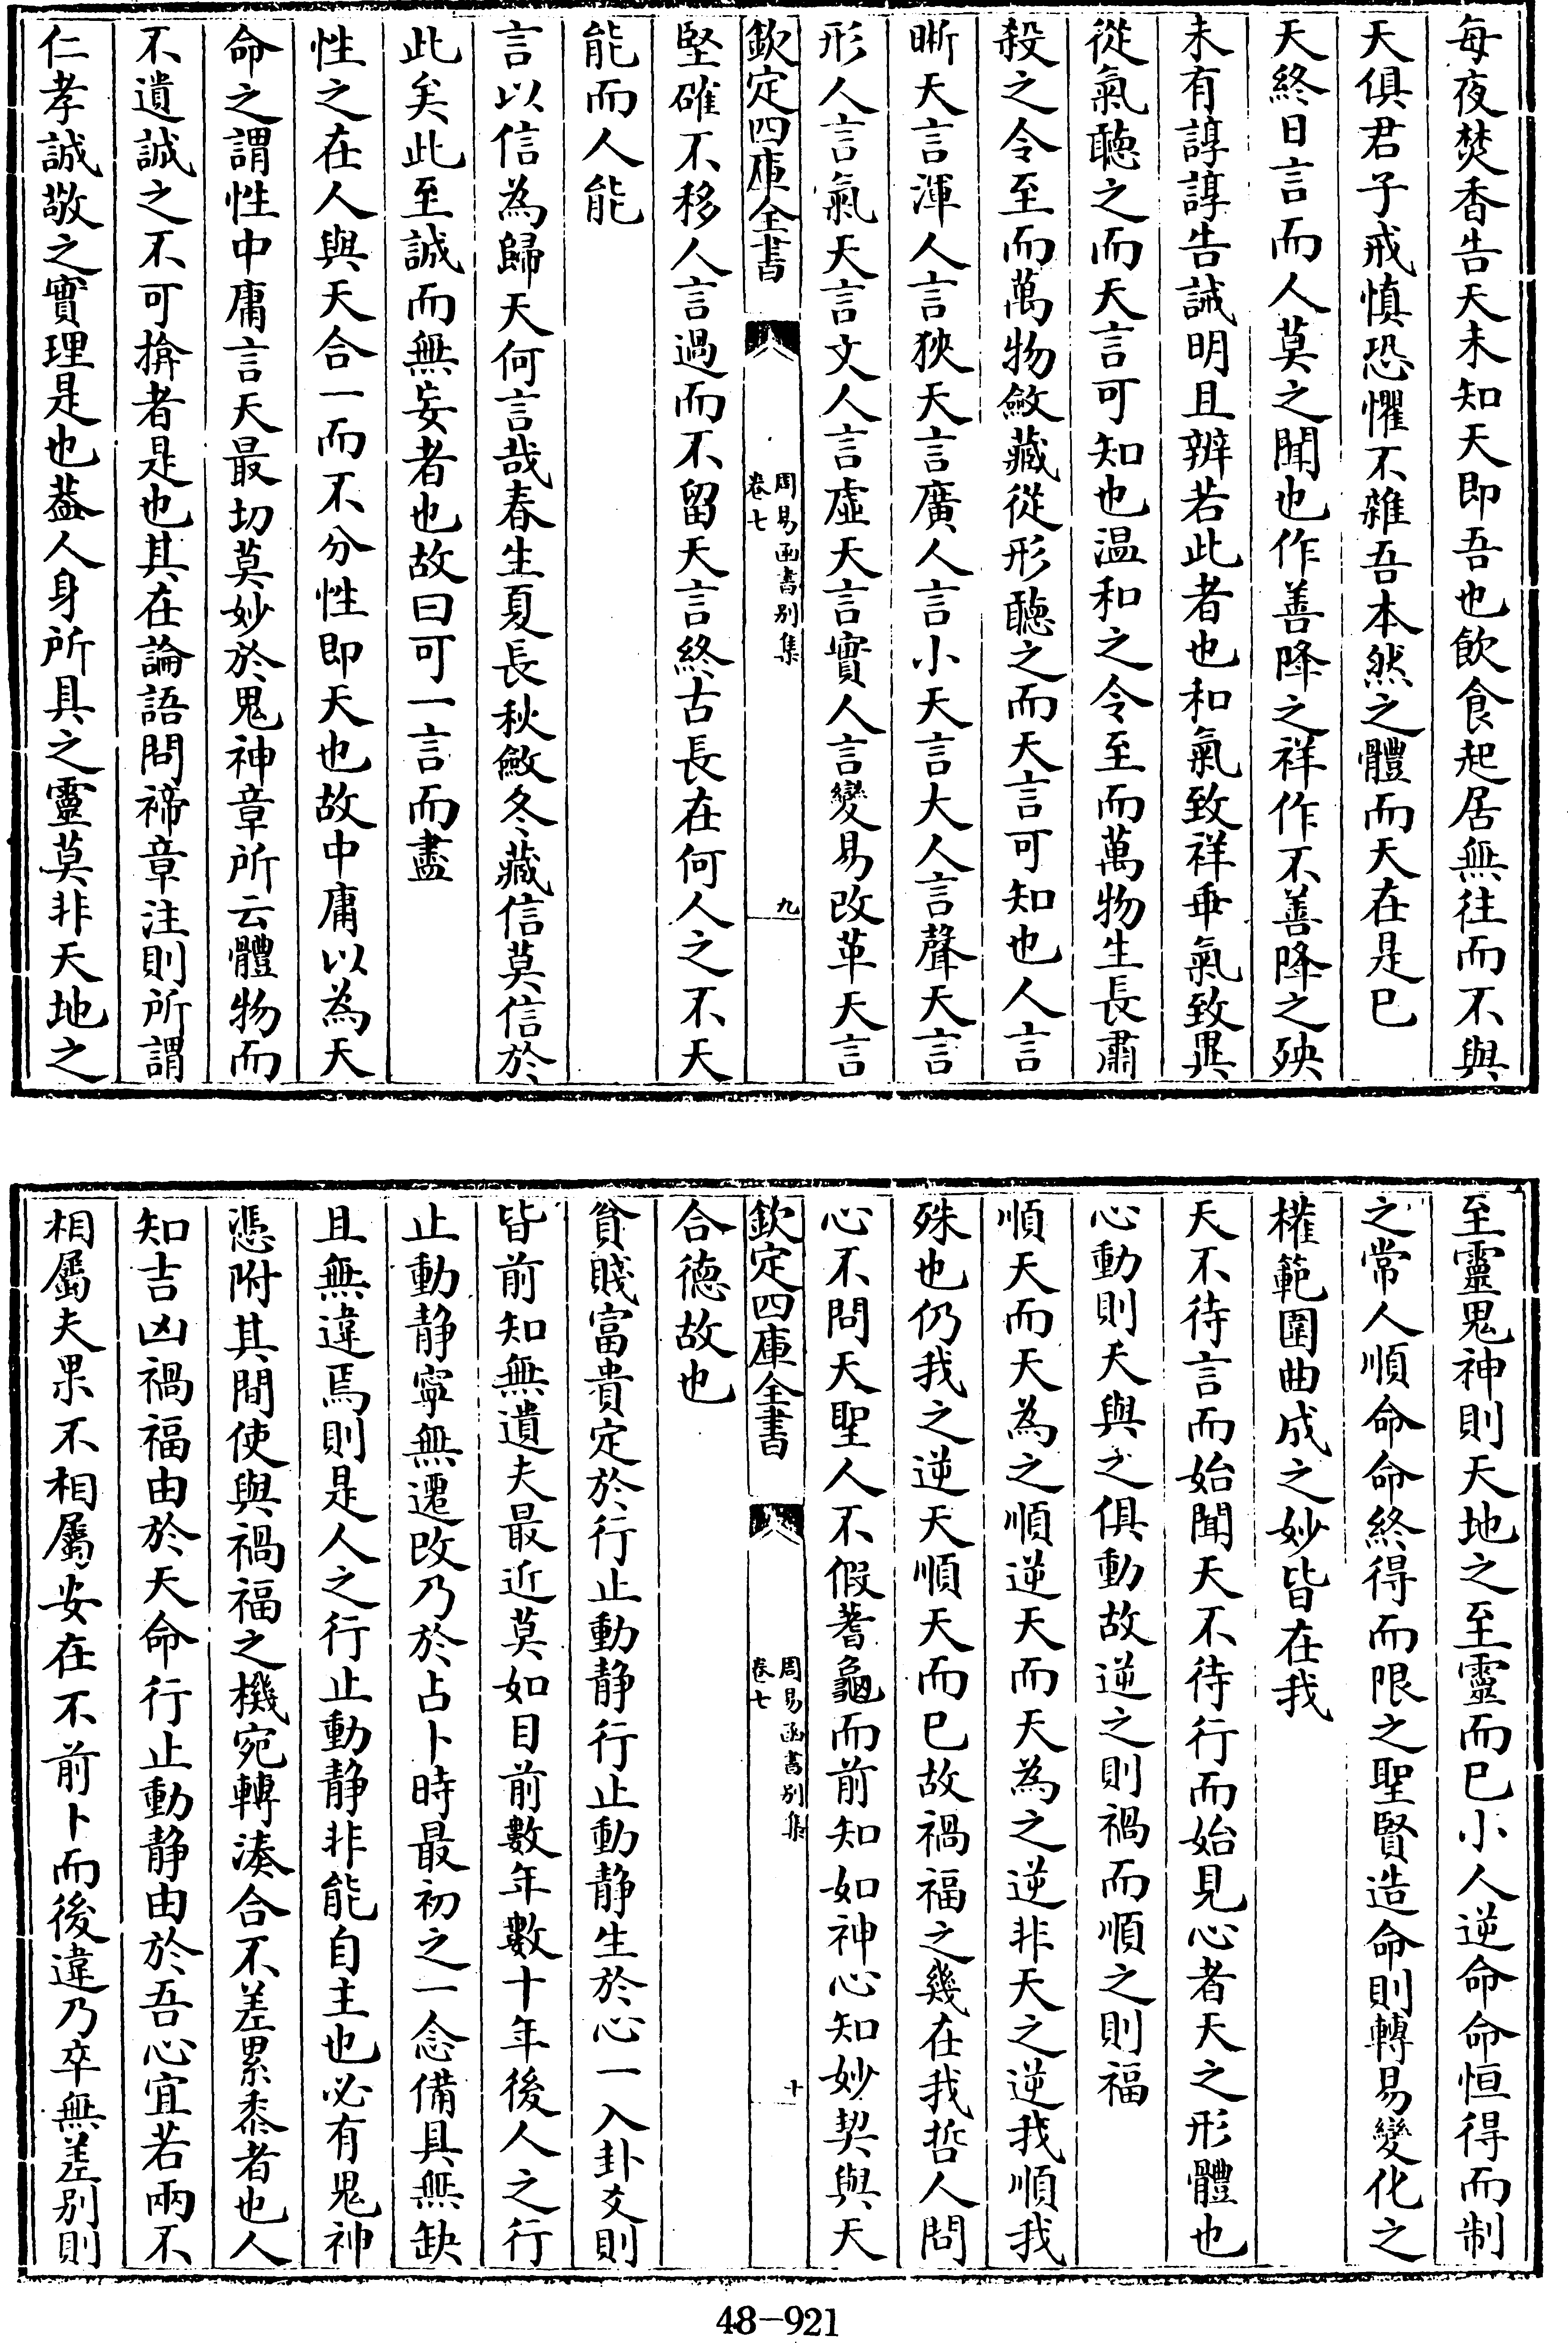 每夜焚香告天未知天即吾也飲食起居無往而不與
天俱君子戒慎恐懼不雜吾本然之體而天在是已
天終日言而人莫之聞也作善降之祥作不善降之殃
未有諄諄告誡明且辨若此者也和氣致祥乖氣致異
從氣聽之而天言可知也温和之令至而萬物生長肅
殺之令至而萬物斂藏從形聽之而天言可知也人言
晰天言渾人言狹天言廣人言小天言大人言聲天言
形人言氣天言文人言虛天言實人言變易改革天言
欽定四庫全書
周易函書別集
卷七
九
堅確不移人言過而不留天言終古長在何人之不天
能而人能
言以信為歸天何言哉春生夏長秋斂冬藏信莫信於
此矣此至誠而無妄者也故曰可一言而盡
性之在人與天合一而不分性即天也故中庸以為天
命之謂性中庸言天最切莫妙於鬼神章所云體物而
不遺誠之不可揜者是也其在論語問禘章注則所謂
仁孝誠敬之實理是也葢人身所具之靈莫非天地之
至靈鬼神則天地之至靈而已小人逆命命恒得而制
之常人順命命終得而限之聖賢造命則轉易變化之
權範圍曲成之妙皆在我
天不待言而始聞天不待行而始見心者天之形體也
心動則天與之俱動故逆之則禍而順之則福
順天而天為之順逆天而天為之逆非天之逆我順我
殊也仍我之逆天順天而已故禍福之幾在我哲人問
心不問天聖人不假蓍龜而前知如神心知妙契與天
欽定四庫全書
周易函書別集
卷七
十
合德故也
貧賤富貴定於行止動静行止動静生於心一入卦爻則
皆前知無遺夫最近莫如目前數年數十年後人之行
止動静寧無遷改乃於占卜時最初之一念備具無缺
且無違焉則是人之行止動静非能自主也必有鬼神
憑附其間使與禍福之機宛轉湊合不差累黍者也人
知吉凶禍福由於天命行止動静由於吾心宜若兩不
相屬夫果不相屬安在不前卜而後違乃卒無差别則
48-921